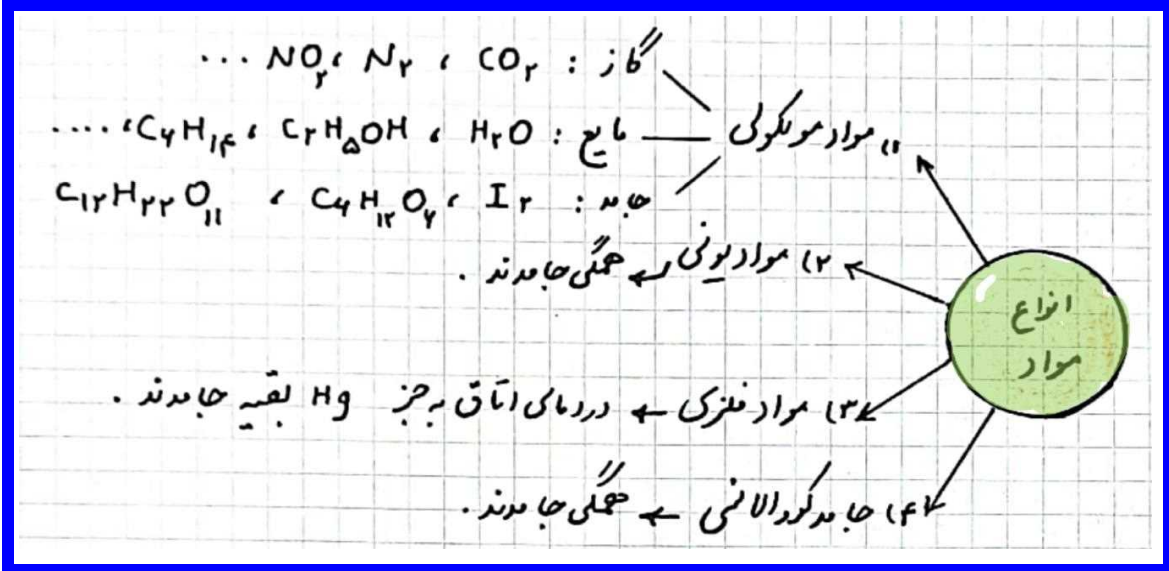 انواع
مواد
۱) مواد مولکولی
گاز : CO۲ ، N۲ ، NO۲ ...
مایع : H۲O ، C۲H۵OH ، C۶H۱۴ ، ....
جامد : I۲ ، C۶H۱۲O۶ ، C۱۲H۲۲O۱۱
۲) مواد یونی ← همگی جامدند .
۳) مواد فلزی ← در دمای اتاق به جز Hg بقیه جامدند .
۴) جامد کووالانسی ← همگی جامدند .